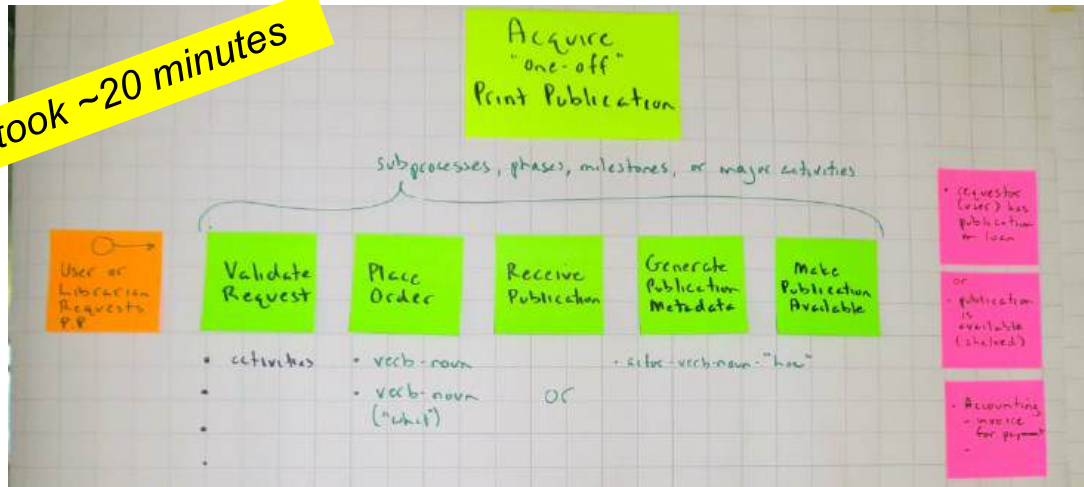 took ~20 minutes
Acquire
"one-off"
Print Publication
subprocesses, phases, milestones, or major activities
User or
Librarian
Requests
P.P.
Validate
Request
Place
Order
Receive
Publication
Generate
Publication
Metadata
Make
Publication
Available
• activities
•
•
•
• verb-noun
• verb-noun
("what")
or
• actor-verb-noun-"how"
• requestor
(user) has
publication
on loan
or
• publication
is
available
(shelved)
• Accounting
- invoice
for payment
-